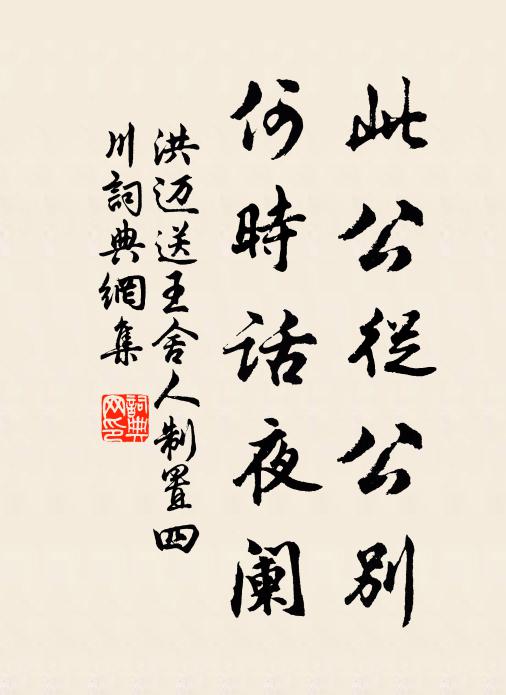 此公從公別
何時話夜阑
洪迈送王舍人制置四
川詞典網集
詞典
网印